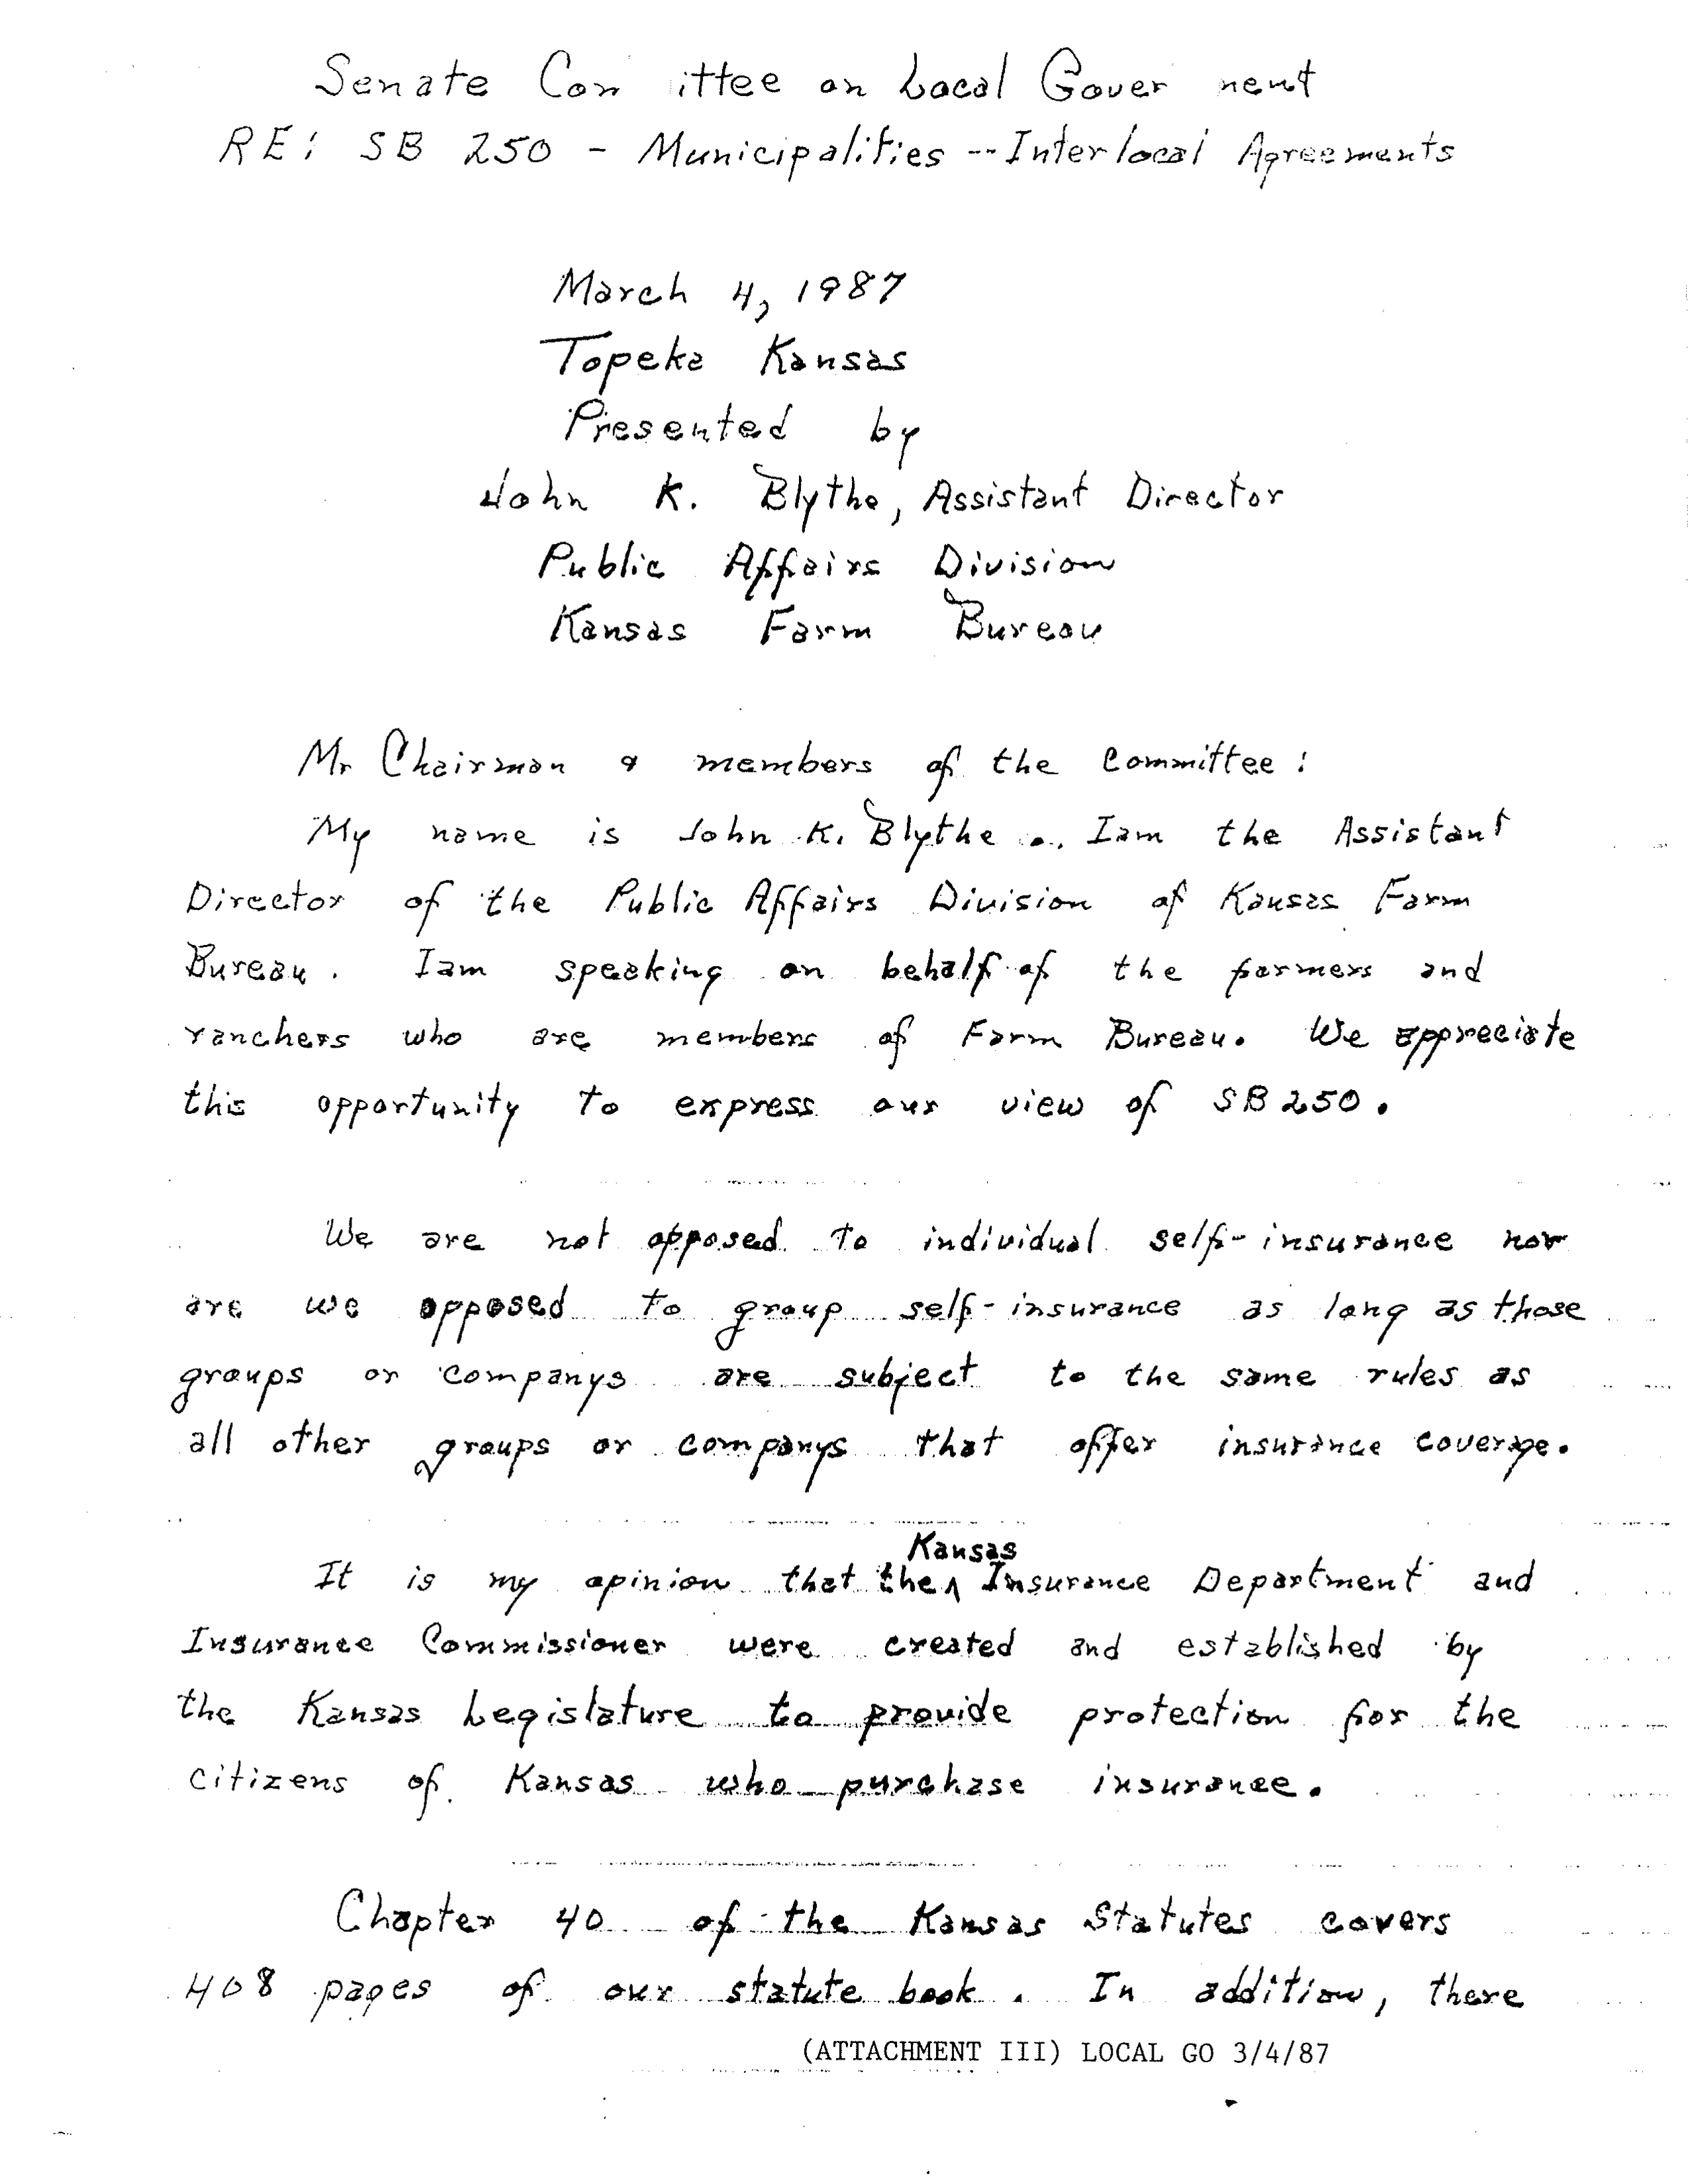 Senate Committee on Local Government
RE: SB 250 - Municipalities -- Interlocal Agreements
March 4, 1987
Topeka Kansas
Presented by
John K. Blythe, Assistant Director
Public Affairs Division
Kansas Farm Bureau
Mr Chairman & members of the Committee:
My name is John K. Blythe ... I am the Assistant
Director of the Public Affairs Division of Kansas Farm
Bureau. I am speaking on behalf of the farmers and
ranchers who are members of Farm Bureau. We appreciate
this opportunity to express our view of SB 250.
We are not opposed to individual self-insurance nor
are we opposed to group self-insurance as long as those
groups or companys are subject to the same rules as
all other groups or companys that offer insurance coverage.
Kansas
It is my opinion that the ^ Insurance Department and
Insurance Commissioner were created and established by
the Kansas Legislature to provide protection for the
citizens of Kansas who purchase insurance.
Chapter 40 of the Kansas Statutes covers
408 pages of our statute book. In addition, there
(ATTACHMENT III) LOCAL GO 3/4/87